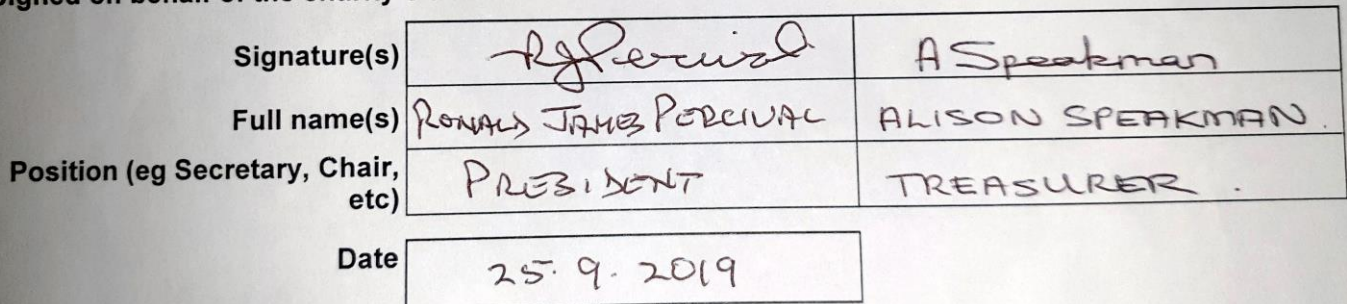 Signed on behalf of the charity
Signature(s) RJPercival A Speakman
Full name(s) RONALD JAMES PERCIVAL ALISON SPEAKMAN.
Position (eg Secretary, Chair, etc) PRESIDENT TREASURER.
Date 25.9.2019